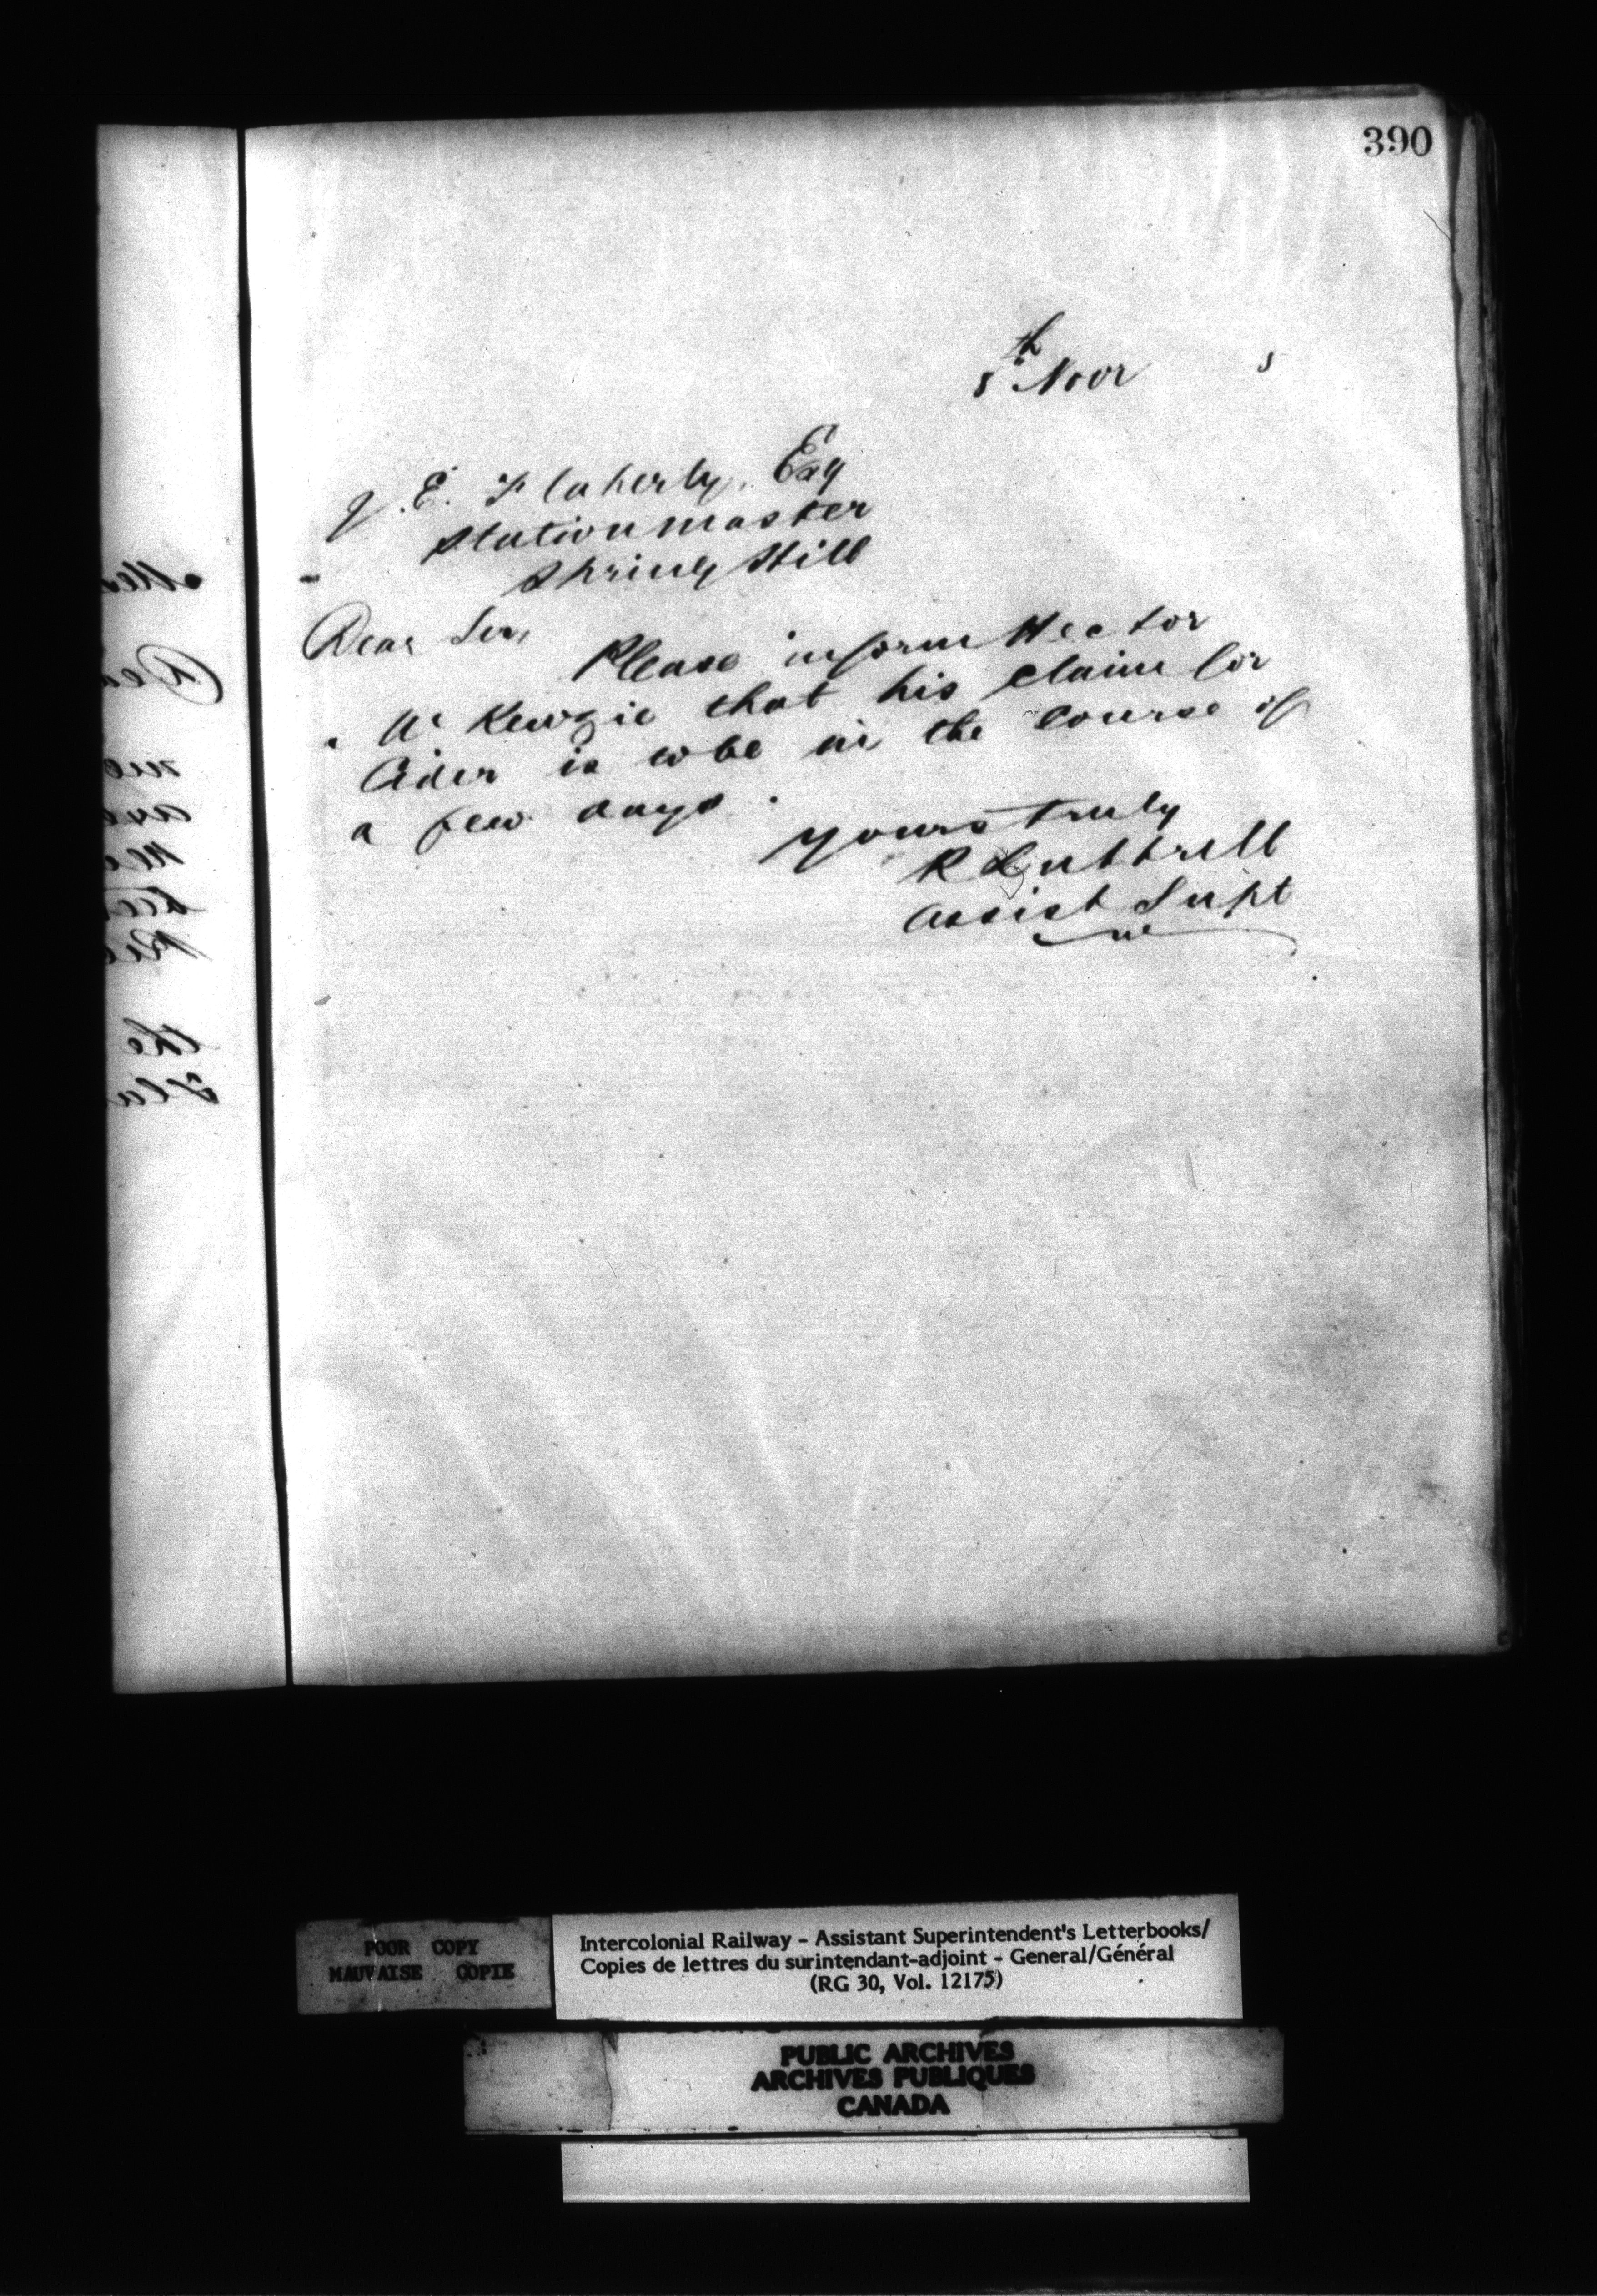 390
8th Novr 5
J. E. Flaherty, Esq
Station master
Spring Hill
Dear Sir,
Please inform Hector
McKenzie that his claim for
Cider is to be in the course of
a few days.
Yours truly
R Luttrell
Assist Supt
Dea
the
Fla
POOR COPY
MAUVAISE COPIE
Intercolonial Railway - Assistant Superintendent's Letterbooks/
Copies de lettres du surintendant-adjoint - General/Général
(RG 30, Vol. 12175)
PUBLIC ARCHIVES
ARCHIVES PUBLIQUES
CANADA